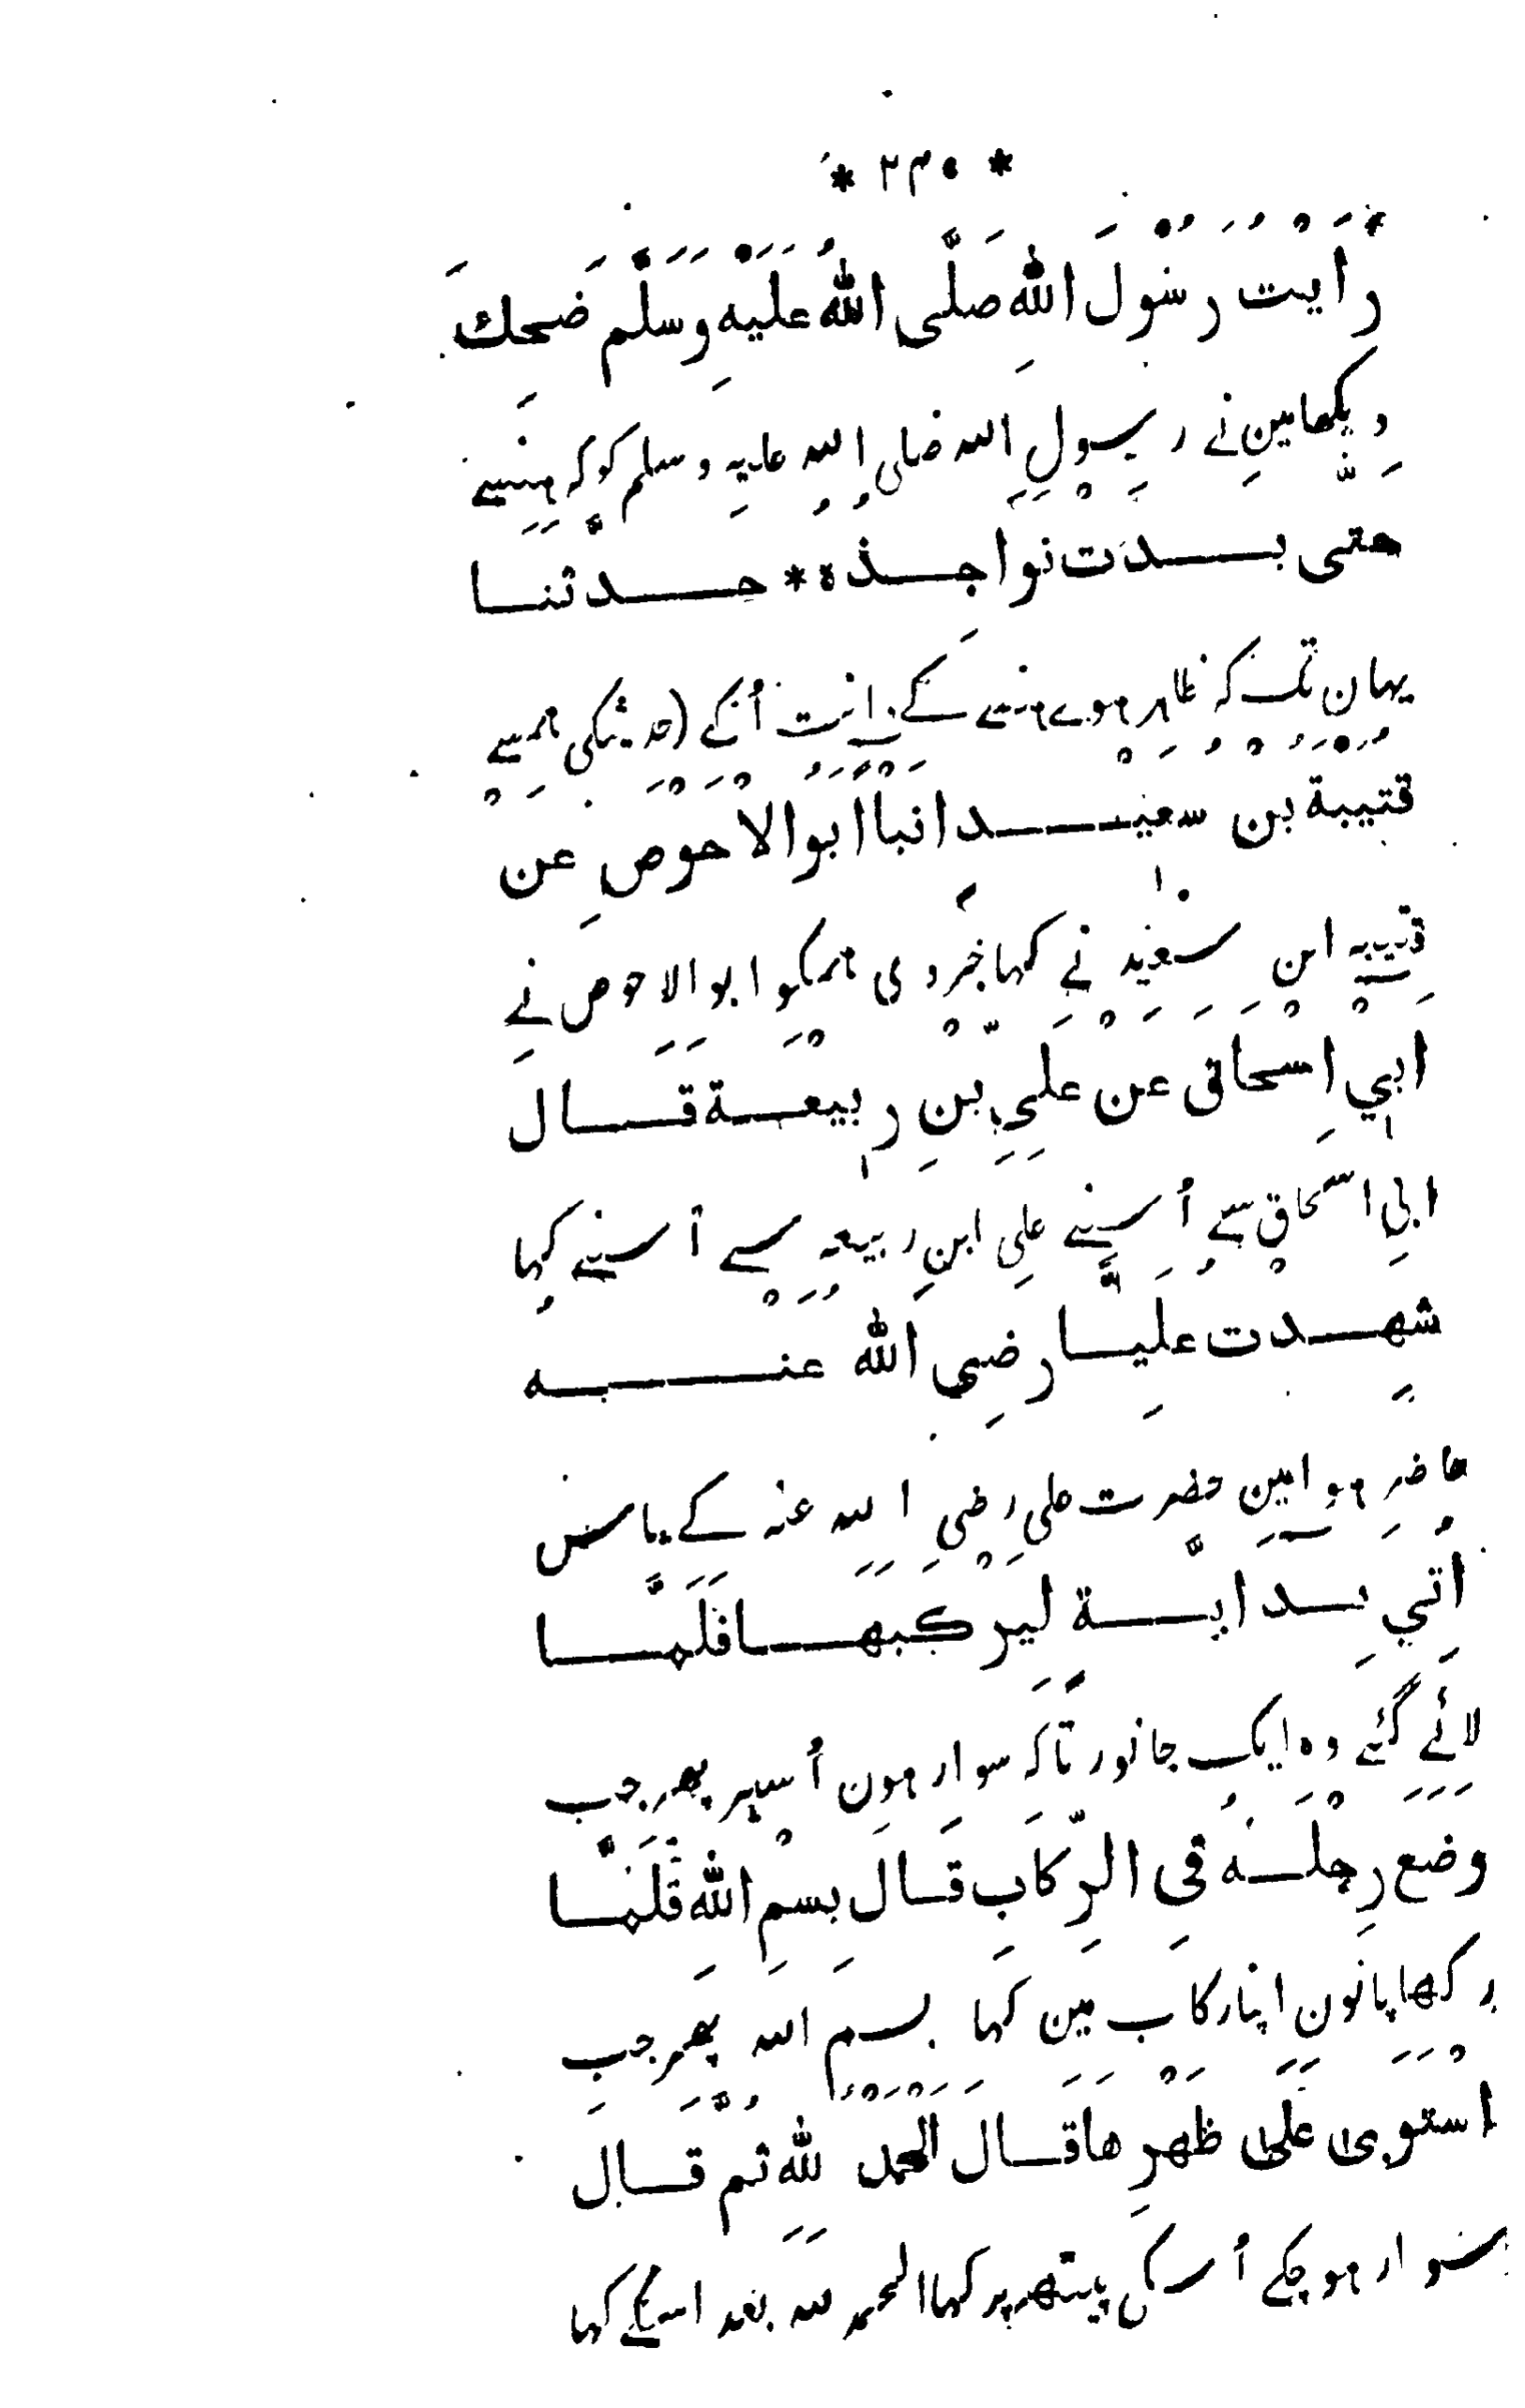 * ۲۴۰ *
رَأَيْتُ رَسُوْلَ اللّٰهِ صَلَّى اللّٰهُ عَلَيْهِ وَسَلَّمَ ضَحِكَ
دیکھا مین نے رسول الله صلی الله علیه وسلم کو که ہنسے
حتى بــدت نواجــذه * حــدثنــا
یہان تک که ظاہر ہوے ہنسے کے دانت اُنکے (حدیث کی ہمسے
قتيبة بن سعيــد انبأ ابو الاحوص عن
قتیبه ابن سعید نے کہا خبر دی ہمکو ابو الاحوص نے
ابي اسحاق عن علي بن ربيعــة قــال
ابی اسحاق سے اُسنے علی ابن ربیعه سے اُسنے کہا
شهــدت عليــا رضي الله عنــه
حاضر ہوا مین حضرت علی رضی الله عنه کے پاس
اتي بــدابــة ليركبهــا فلمــا
لائے گئے وہ ایک جانور تاکه سوار ہون اُسپر پھر جب
وضع رجلــه في الركاب قــال بسم الله فلمــا
رکھا پانون اپنا رکاب مین کہا بسم الله پھر جب
استوى على ظهرها قــال الحمد لله ثم قــال
سوار ہو چکے اُسکی پیٹھ پر کہا الحمد لله بعد اسکے کہا